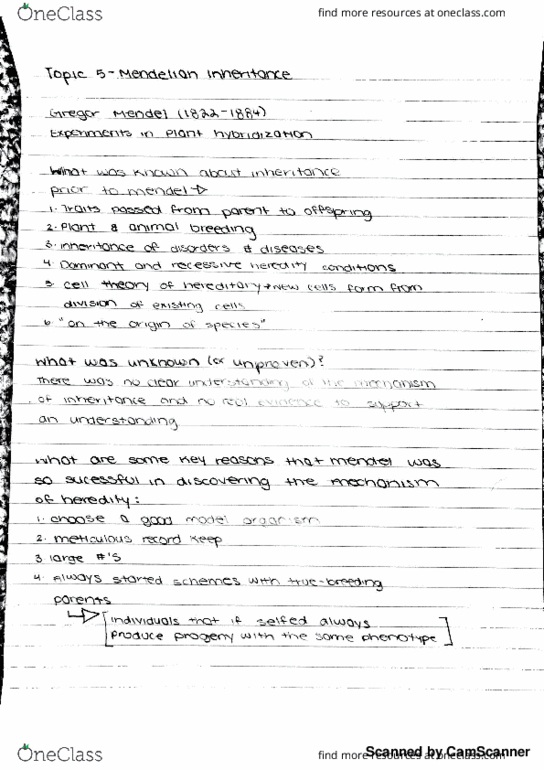 OneClass
find more resources at oneclass.com
Topic 5 - Mendelian Inheritance
Gregor Mendel (1822-1884)
Experiments in Plant Hybridization
What was known about inheritance
prior to mendel →
1. Traits passed from parent to offspring
2. Plant & animal breeding
3. inheritance of disorders & diseases
4. Dominant and recessive heredity conditions
5. cell theory of hereditary → new cells form from
division of existing cells
6. "on the origin of species"
What was unknown (or unproven)?
There was no clear understanding of the mechanism
of inheritance and no real evidence to support
an understanding
What are some key reasons that mendel was
so sucessful in discovering the mechanism
of heredity:
1. choose a good model organism
2. meticulous record keep
3. large #'s
4. Always started schemes with true-breeding
parents
↳ [individuals that if selfed always
produce progeny with the same phenotype]
OneClass
find more resources at oneclass.com
Scanned by CamScanner